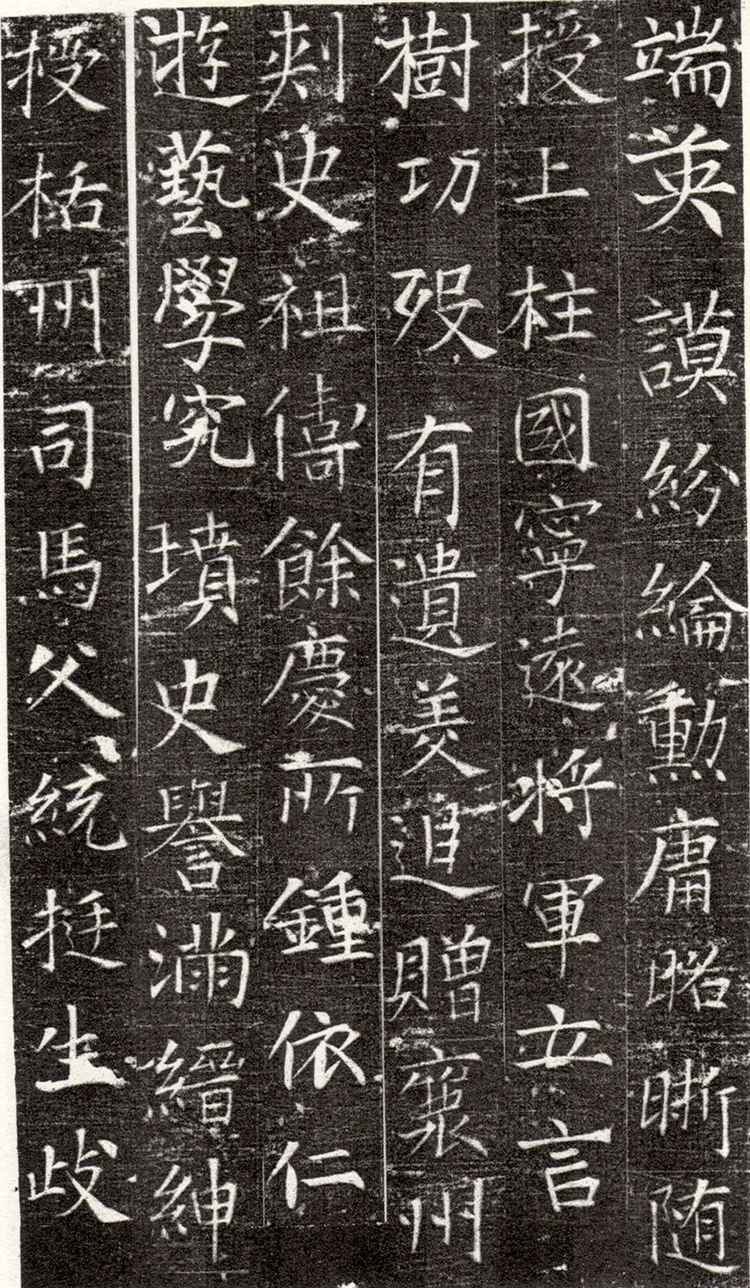 端英謨紛綸勳庸昭晰随
授上柱國寧遠將軍立言
樹功歿有遺美追贈襄州
刺史祖儔餘慶所鍾依仁
遊藝學究墳史譽滿縉紳
授栝州司馬父統挺生歧